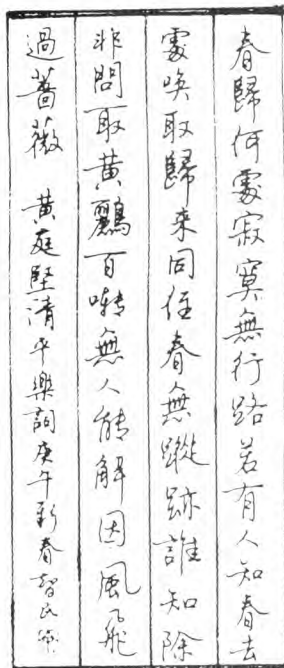 春歸何處寂寞無行路若有人知春去
處喚取歸來同住春無蹤跡誰知除
非問取黃鸝百囀無人能解因風飛
過薔薇 黃庭堅清平樂詞庚午新春智民錄